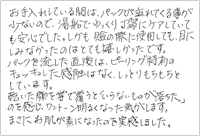 お手入れしている間は、パックが垂れてくる事が
少ないので、湯船でゆっくり丁寧にケアしていて
も安心でした。しかも瞼の際に使用しても、目に
しみなかったのはとても嬉しかったです。
パックを流した直後は、ピーリング特有の
キュッキュした感触はなく、しっとりもちもちと
しています。
乾いた顔を掌で覆うと"いらないものが落ちた。"
のを感じ、ワントーン明るくなった気がします。
まさに、お肌が素になったのを実感しました。